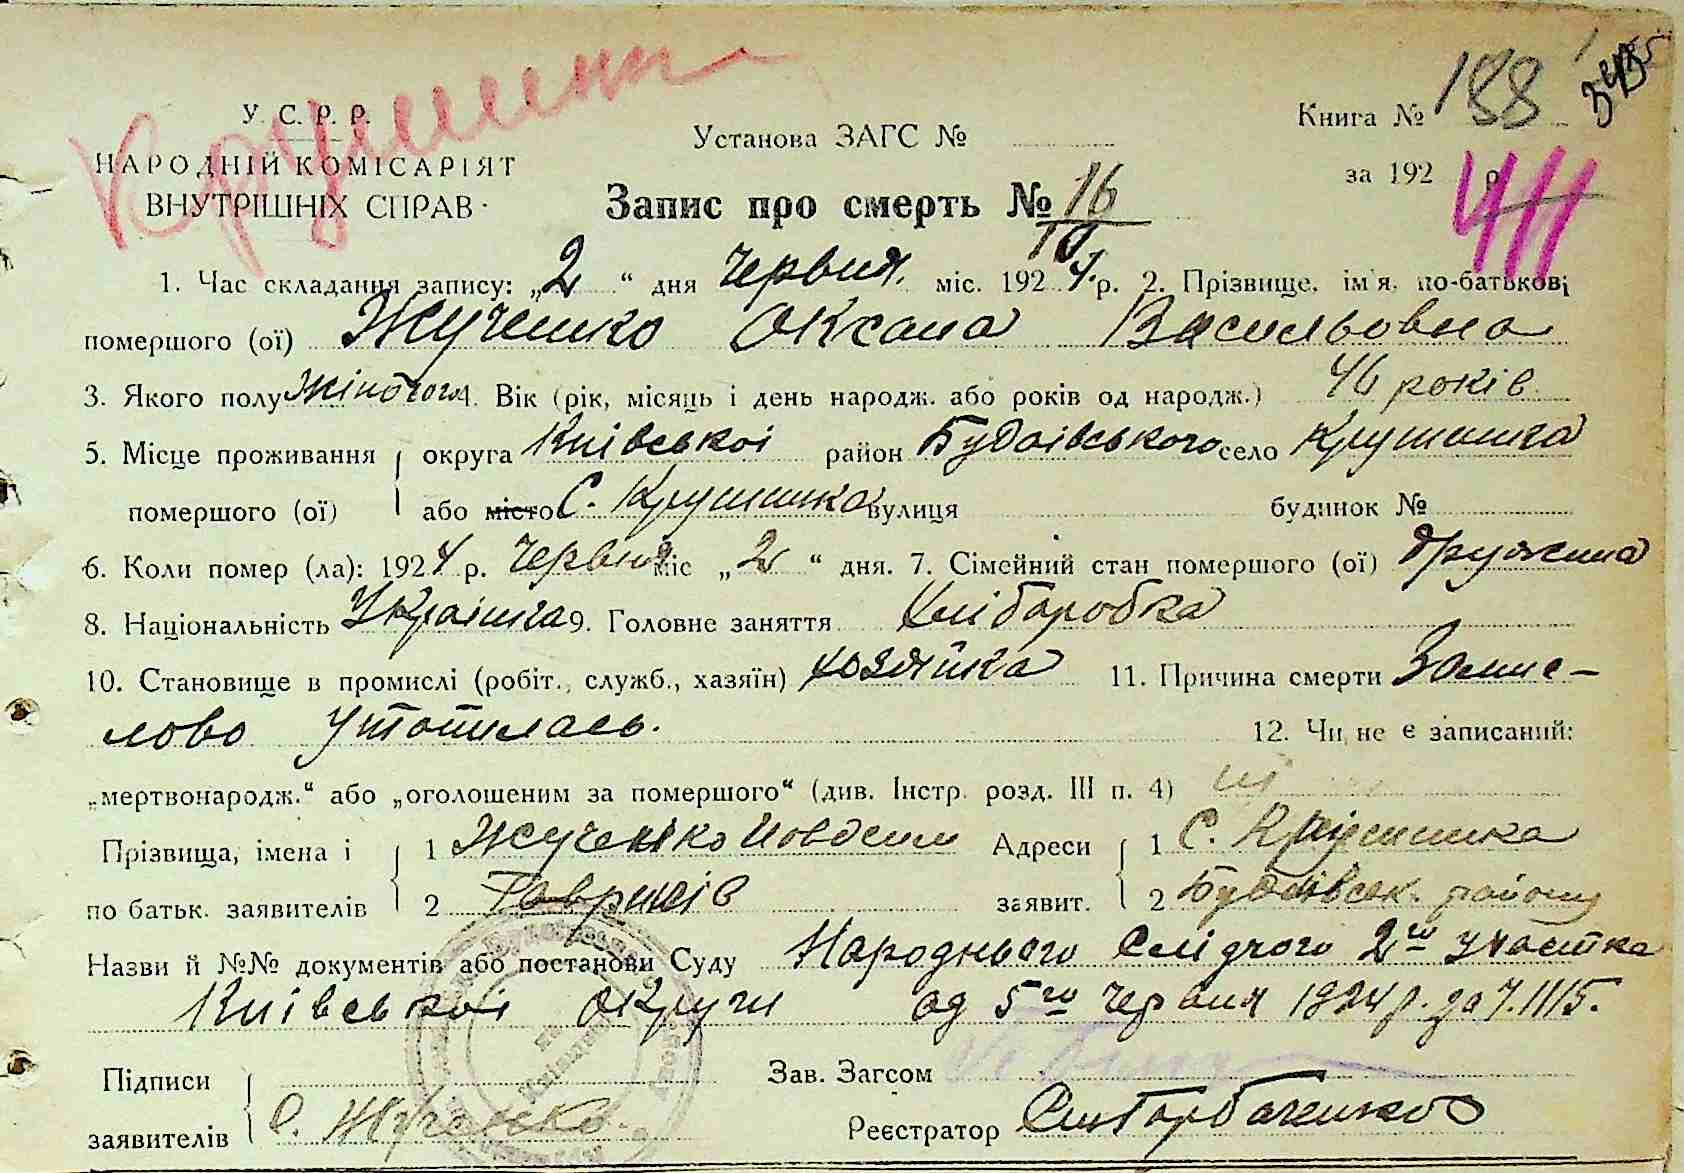 Крушинка
У. С. Р. Р.
НАРОДНІЙ КОМІСАРІЯТ
ВНУТРІШНІХ СПРАВ
Установа ЗАГС №
Книга № 188
за 192 р.
Запис про смерть № 16
1. Час складання запису: „2“ дня Червня міс. 1924 р. 2. Прізвище, ім'я, по-батькові
помершого (ої) Жученко Оксана Васильовна
3. Якого полу жіночого 4. Вік (рік, місяць і день народж. або років од народж.) 46 років
5. Місце проживання округа Київської район Будаівського село Крушинка
помершого (ої) або місто С. Крушинка вулиця будинок №
6. Коли помер (ла): 1924 р. Червня міс „2“ дня. 7. Сімейний стан помершого (ої) дружина
8. Національність Украінка 9. Головне заняття хліборобка
10. Становище в промислі (робіт., служб., хазяїн) хозяйка 11. Причина смерти
лово утопилась.
12. Чи не є записаний:
„мертвонародж.“ або „оголошеним за помершого“ (див. Інстр. розд. III п. 4) ні
Прізвища, імена і 1 Жученко Адреси 1 С. Крушинка
по батьк. заявителів 2 заявит. 2 Будаівськ. району
Назви й №№ документів або постанови Суду Народнього Слідчого 2го участка
Київської округи од 5го червня 1924 р. за
Підписи
заявителів О. Жученко
Зав. Загсом
Реєстратор Горбаченко